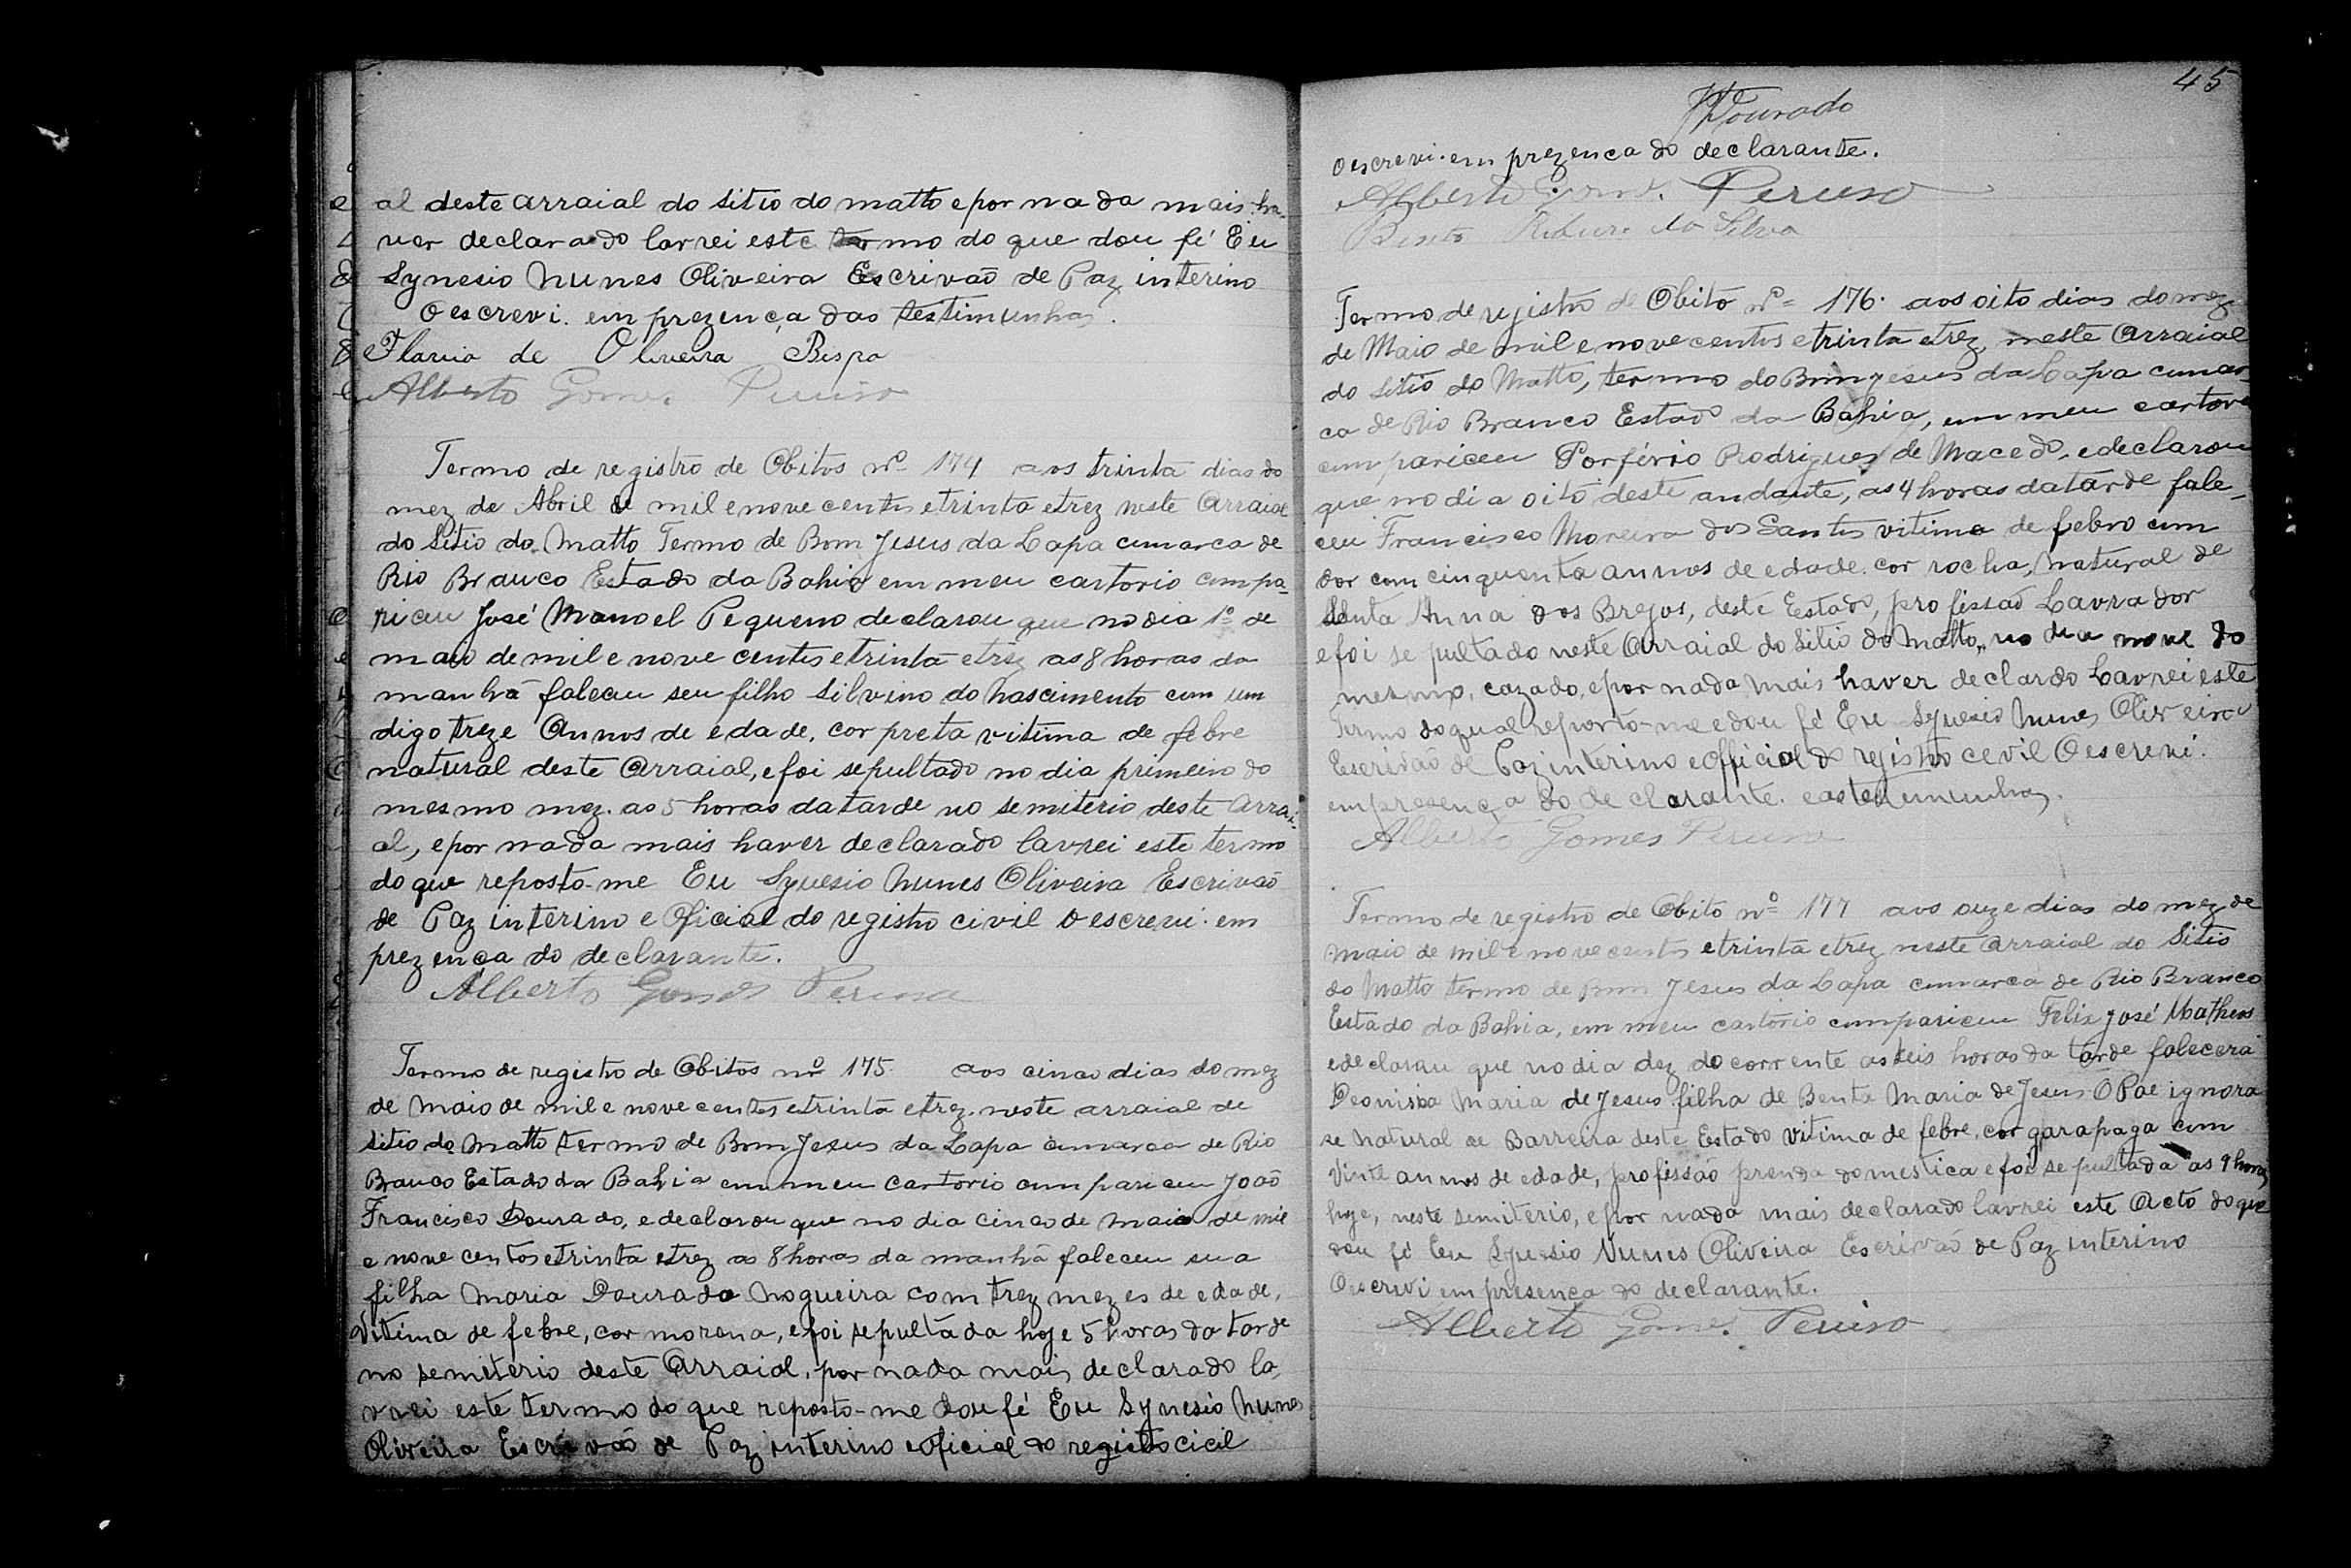 al deste arraial do sitio do matto e por nada mais ha-
ver declarado lavrei este termo do que dou fé Eu
Synesio Nunes Oliveira Escrivão de Paz interino
o escrevi. em prezença das testimunhas.
Flavio de Oliveira Bispo
Alberto Gomes
Termo de registro de Obitos nº 174 aos trinta dias do
mez de Abril de mil e novecentos e trinta e trez neste Arraial
do Sitio do Matto Termo de Bom Jesus da Lapa cumarca de
Rio Branco Estado da Bahia em meu cartorio cumpa-
riceu José Manoel Pequeno declarou que no dia 1º de
maio de mil e nove centos e trinta e trez as 8 horas da
manhã faleceu seu filho Silvino do Nascimento com um
digo treze Annos de edade, cor preta vitima de febre
natural deste Arraial, e foi sepultado no dia primeiro do
mesmo mez. as 5 horas da tarde no semiterio deste Arrai-
al, e por nada mais haver declarado lavrei este termo
do que reposto-me Eu Synesio Nunes Oliveira Escrivão
de Paz interino e Oficial do registro civil o escrevi. em
prezença do declarante.
Alberto Gomes
Termo de registro de Obitos nº 175. aos cinco dias do mez
de Maio de mil e nove centos e trinta e trez. neste arraial de
sitio do Matto termo de Bom Jesus da Lapa cumarca de Rio
Branco Estado da Bahia em meu cartorio cumpariceu João
Francisco Dourado, e declarou que no dia cinco de maio de mil
e nove centos e trinta e trez as 8 horas da manhã faleceu sua
filha Maria Dourado Nogueira com trez mezes de edade,
vitima de febre, cor morena, e foi sepultada hoje 5 horas da tarde
no semiterio deste Arraial, por nada mais declarado la-
vrei este termo do que reposto-me dou fé Eu Synesio Nunes
Oliveira Escrivão de Paz interino e oficial do registro cicil
45
Dourado
o escrevi. em prezenca do declarante.
Alberto Gomes
Bento da Silva
Termo de registro de Obito nº 176. aos oito dias do mez
de Maio de mil e nove centos e trinta e trez, neste Arraial
do sitio do Matto, termo do Bom Jesus da Lapa cumar-
ca de Rio Branco Estado da Bahia, em meu cartorio
cumpariceu Porfirio Rodrigues de Macedo, e declarou
que no dia oito deste andante, as 4 horas da tarde fale-
ceu Francisco Moreira dos Santos vitima de febro com
dor com cinquenta annos de edade. cor rocha, natural de
Santa Anna dos Brejos, deste Estado, profissão Lavrador
e foi sepultado neste Arraial do Sitio do Matto, no dia nove do
mesmo, cazado, e por nada mais haver declardo Lavrei este
Termo do qual reporto-me e dou fé Eu Synesio Nunes Oliveira
Escrivão de Paz interino e Official do registro cevil O escrevi.
em presença do declarante. e as testemunhas.
Alberto Gomes
Termo de registro de Obito nº 177 aos onze dias do mez de
maio de mil e nove centos e trinta e trez neste arraial do Sitio
do Matto termo de Bom Jesus da Lapa cumarca de Rio Branco
Estado da Bahia, em meu cartorio cumpariceu Felix José Matheos
e declarou que no dia dez do corrente as seis horas da tarde falecera
Maria de Jesus filha de Benta Maria de Jesus O Pae ignora
se natural de Barreira deste Estado vitima de febre, cor garapaga com
vinte annos de edade, profissão prenda domestica e foi sepultada as 9 horas
hoje, neste semiterio, e por nada mais declarado lavrei este Acto do que
dou fé Eu Synesio Nunes Oliveira Escrivão de Paz interino
O escrevi em presença do declarante.
Alberto Gomes